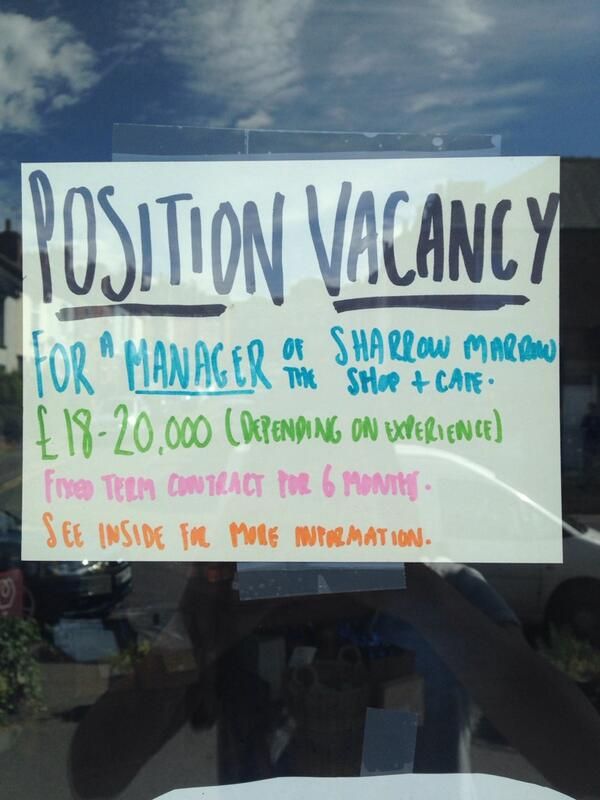 POSITION VACANCY
FOR A MANAGER OF THE SHARROW MARROW
SHOP + CAFE.
£18-20,000 (DEPENDING ON EXPERIENCE)
FIXED TERM CONTRACT FOR 6 MONTHS.
SEE INSIDE FOR MORE INFORMATION.